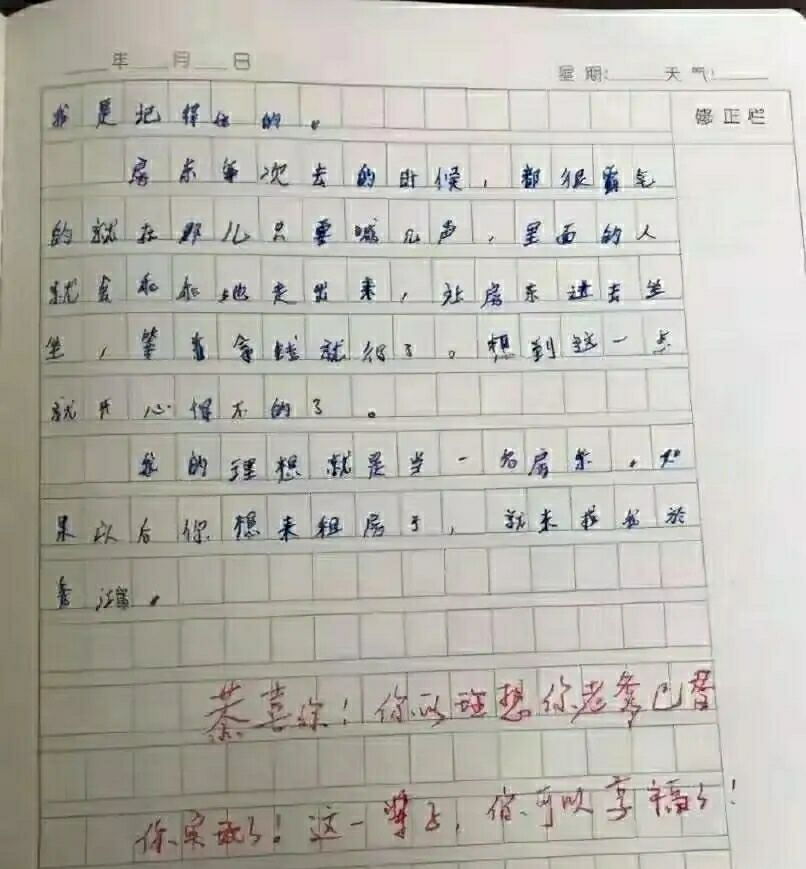 年 月 日
星期: 天气:
修正栏
我是记得住的。
房东每次去的时候，都很霸气
的就在那儿只要喊几声，里面的人
就会乖乖地走出来，让房东进去坐
坐，等着拿钱就行了。想到这一点
就开心得不的了。
我的理想就是当一名房东。如
果以后你想来租房子，就来找
恭喜你！你的理想你老爹已替
你实现了！这一辈子，你可以享福了！